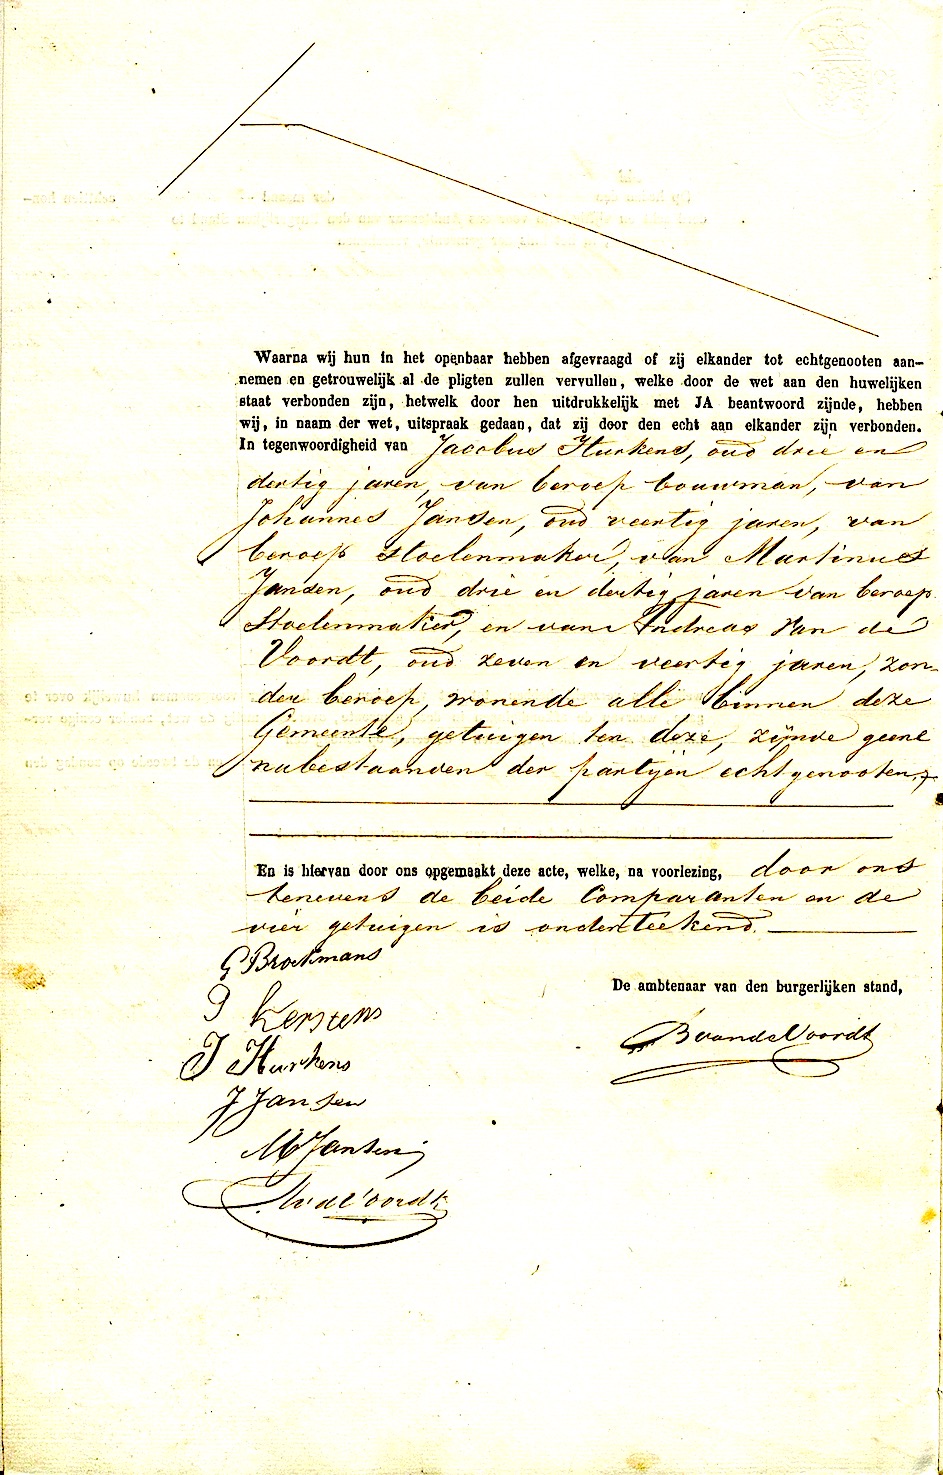 Waarna wij hun in het openbaar hebben afgevraagd of zij elkander tot echtgenooten aan-
nemen en getrouwelijk al de pligten zullen vervullen, welke door de wet aan den huwelijken
staat verbonden zijn, hetwelk door hen uitdrukkelijk met JA beantwoord zijnde, hebben
wij, in naam der wet, uitspraak gedaan, dat zij door den echt aan elkander zijn verbonden.
In tegenwoordigheid van Jacobus Hurkens, oud drie en
dertig jaren, van beroep bouwman, van
Johannes Jansen, oud veertig jaren, van
beroep stoelenmaker, van Martinus
Jansen, oud drie en dertig jaren van beroep
Stoelenmaker, en van Andreas Van de
Voordt, oud zeven en veertig jaren, zon-
der beroep, wonende alle binnen deze
Gemeente, getuigen ten deze, zijnde geene
nabestaanden der partijen echtgenooten.
En is hiervan door ons opgemaakt deze acte, welke, na voorlezing, door ons
benevens de beide Comparanten en de
vier getuigen is onderteekend.
G Broekmans
P Kersten
De ambtenaar van den burgerlijken stand,
J Hurkens
B vande Voordt
J Jansen
M Jansen
A v d Voordt